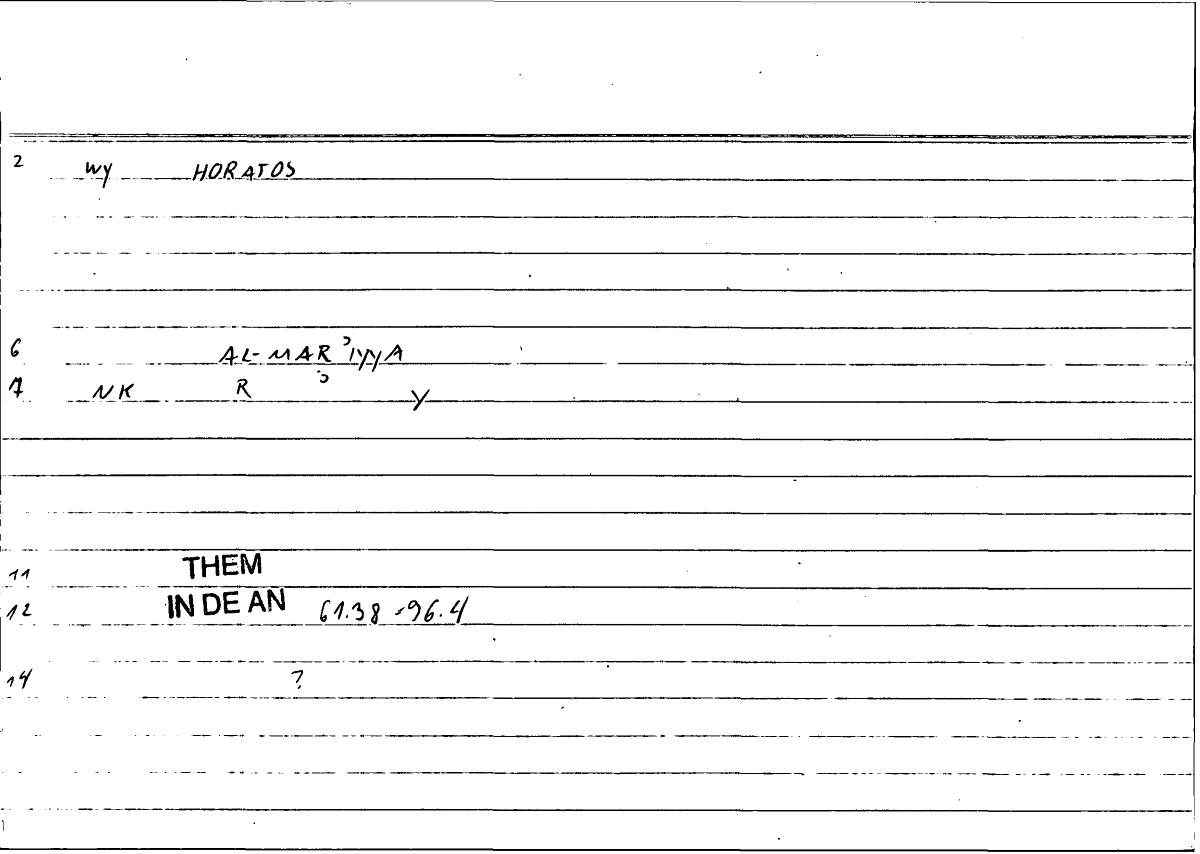 2 wy HORATOS
6 AL-MARʾIYYA
7 NK R ʾ Y
11 THEM
12 IN DE AN 61.38-96.4
14 ?